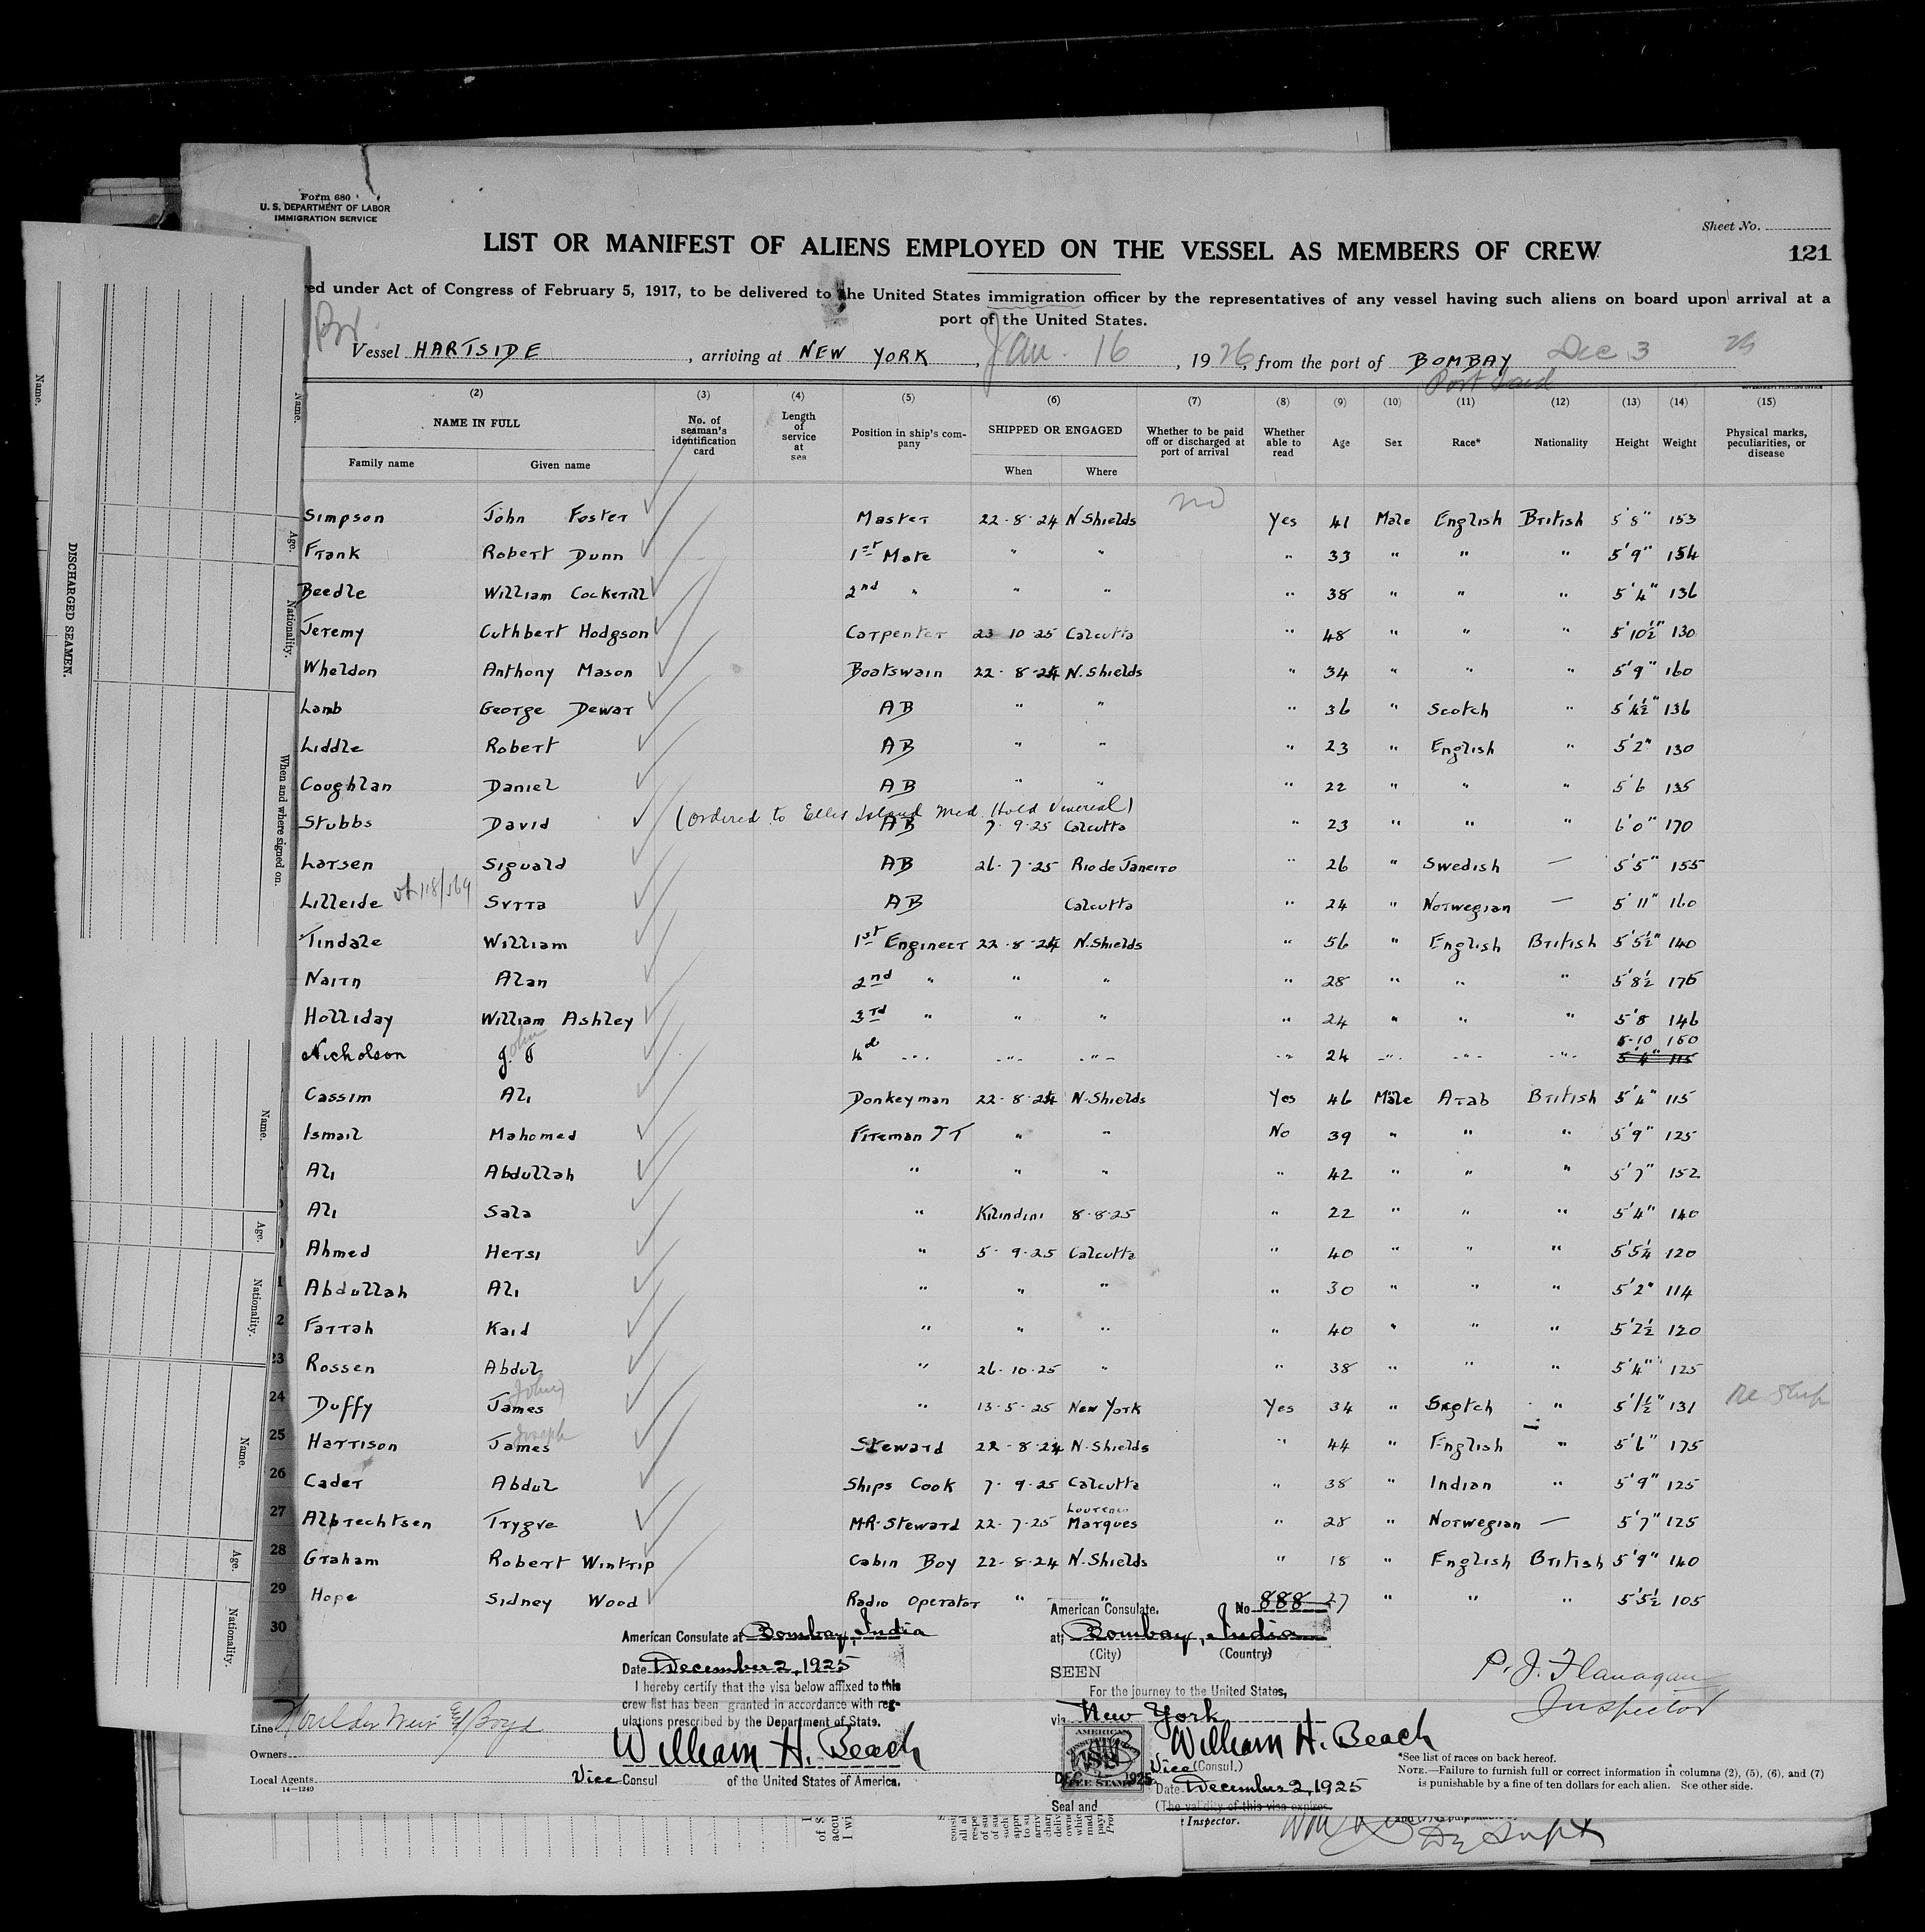 Form 680
U. S. DEPARTMENT OF LABOR
IMMIGRATION SERVICE
Sheet No.
LIST OR MANIFEST OF ALIENS EMPLOYED ON THE VESSEL AS MEMBERS OF CREW
121
ed under Act of Congress of February 5, 1917, to be delivered to the United States immigration officer by the representatives of any vessel having such aliens on board upon arrival at a
port of the United States.
Vessel HARTSIDE, arriving at NEW YORK, Jan. 16, 1926, from the port of BOMBAY Dec 3
Port Said
(2) (3) (4) (5) (6) (7) (8) (9) (10) (11) (12) (13) (14) (15)
NAME IN FULL No. of seaman's identification card Length of service at sea Position in ship's company SHIPPED OR ENGAGED Whether to be paid off or discharged at port of arrival Whether able to read Age Sex Race* Nationality Height Weight Physical marks, peculiarities, or disease
Family name Given name When Where
Simpson John Foster Master 22-8-24 N Shields no Yes 41 Male English British 5'8" 153
Frank Robert Dunn 1st Mate " " " 33 " " " 5'9" 154
Beedle William Cockerill 2nd " " " " 38 " " " 5'4" 136
Jeremy Cuthbert Hodgson Carpenter 23 10 25 Calcutta " 48 " " " 5'10½" 130
Wheldon Anthony Mason Boatswain 22-8-24 N. Shields " 34 " " " 5'9" 160
Lamb George Dewar AB " " " 36 " Scotch " 5'4½" 136
Liddle Robert AB " " " 23 " English " 5'2" 130
Coughlan Daniel AB " " " 22 " " " 5'6 135
(ordered to Ellis Island Med. Hold Venereal)
Stubbs David AB 7-9-25 Calcutta " 23 " " " 6'0" 170
Larsen Siguald AB 26-7-25 Rio de Janeiro " 26 " Swedish — 5'5" 155
Lilleide Syrra AB Calcutta " 24 " Norwegian — 5'11" 160
Tindale William 1st Engineer 22-8-24 N. Shields " 56 " English British 5'5½" 140
Nairn Alan 2nd " " " " 28 " " " 5'8½ 176
Holliday William Ashley 3rd " " " " 24 " " " 5'8 146
Nicholson J. John 4th " " " " 24 " " " 5-10 150 5'4" 115
Cassim Ali Donkeyman 22-8-24 N. Shields Yes 46 Male Arab British 5'4" 115
Ismail Mahomed Fireman TT " " No 39 " " " 5'9" 125
Ali Abdullah " " " " 42 " " " 5'7" 152
Ali Sala " Kilindini 8-8-25 " 22 " " " 5'4" 140
Ahmed Hersi " 5-9-25 Calcutta " 40 " " " 5'5¼ 120
Abdullah Ali " " " " 30 " " " 5'2" 114
Farrah Kaid " " " " 40 " " " 5'2½ 120
23 Rossen Abdul " 26-10-25 " " 38 " " " 5'4" 125
24 Duffy James John " 13-5-25 New York Yes 34 " Scotch " 5'1½" 131
25 Harrison James Joseph Steward 22-8-24 N. Shields " 44 " English " 5'6" 175
26 Cader Abdul Ships Cook 7-9-25 Calcutta " 38 " Indian " 5'9" 125
27 Albrechtsen Trygve M.R. Steward 22-7-25 Lourenco Marques " 28 " Norwegian — 5'7" 125
28 Graham Robert Wintrip Cabin Boy 22-8-24 N. Shields " 18 " English British 5'9" 140
29 Hope Sidney Wood Radio Operator " " 27 " " " 5'5½ 105
30
American Consulate at Bombay, India
Date December 2, 1925
I hereby certify that the visa below affixed to this
crew list has been granted in accordance with reg-
ulations prescribed by the Department of State.
William H. Beach
Vice Consul of the United States of America.
American Consulate. No 888
at Bombay, India
(City) (Country)
SEEN
For the journey to the United States,
via New York
William H. Beach
Vice (Consul.)
Date December 2, 1925
Seal and (The validity of this visa expires
AMERICAN
FEE STAMP
DEC 2 1925
P. J. Flanagan
Inspector
Line Houlder Weir & Boyd
Owners
Local Agents
14—1240
*See list of races on back hereof.
NOTE.—Failure to furnish full or correct information in columns (2), (5), (6), and (7)
is punishable by a fine of ten dollars for each alien. See other side.
Inspector.
DISCHARGED SEAMEN.
Name.
Name.
Age.
Nationality.
When and where signed on.
Name.
Age.
Nationality.
Name.
Age.
Nationality.